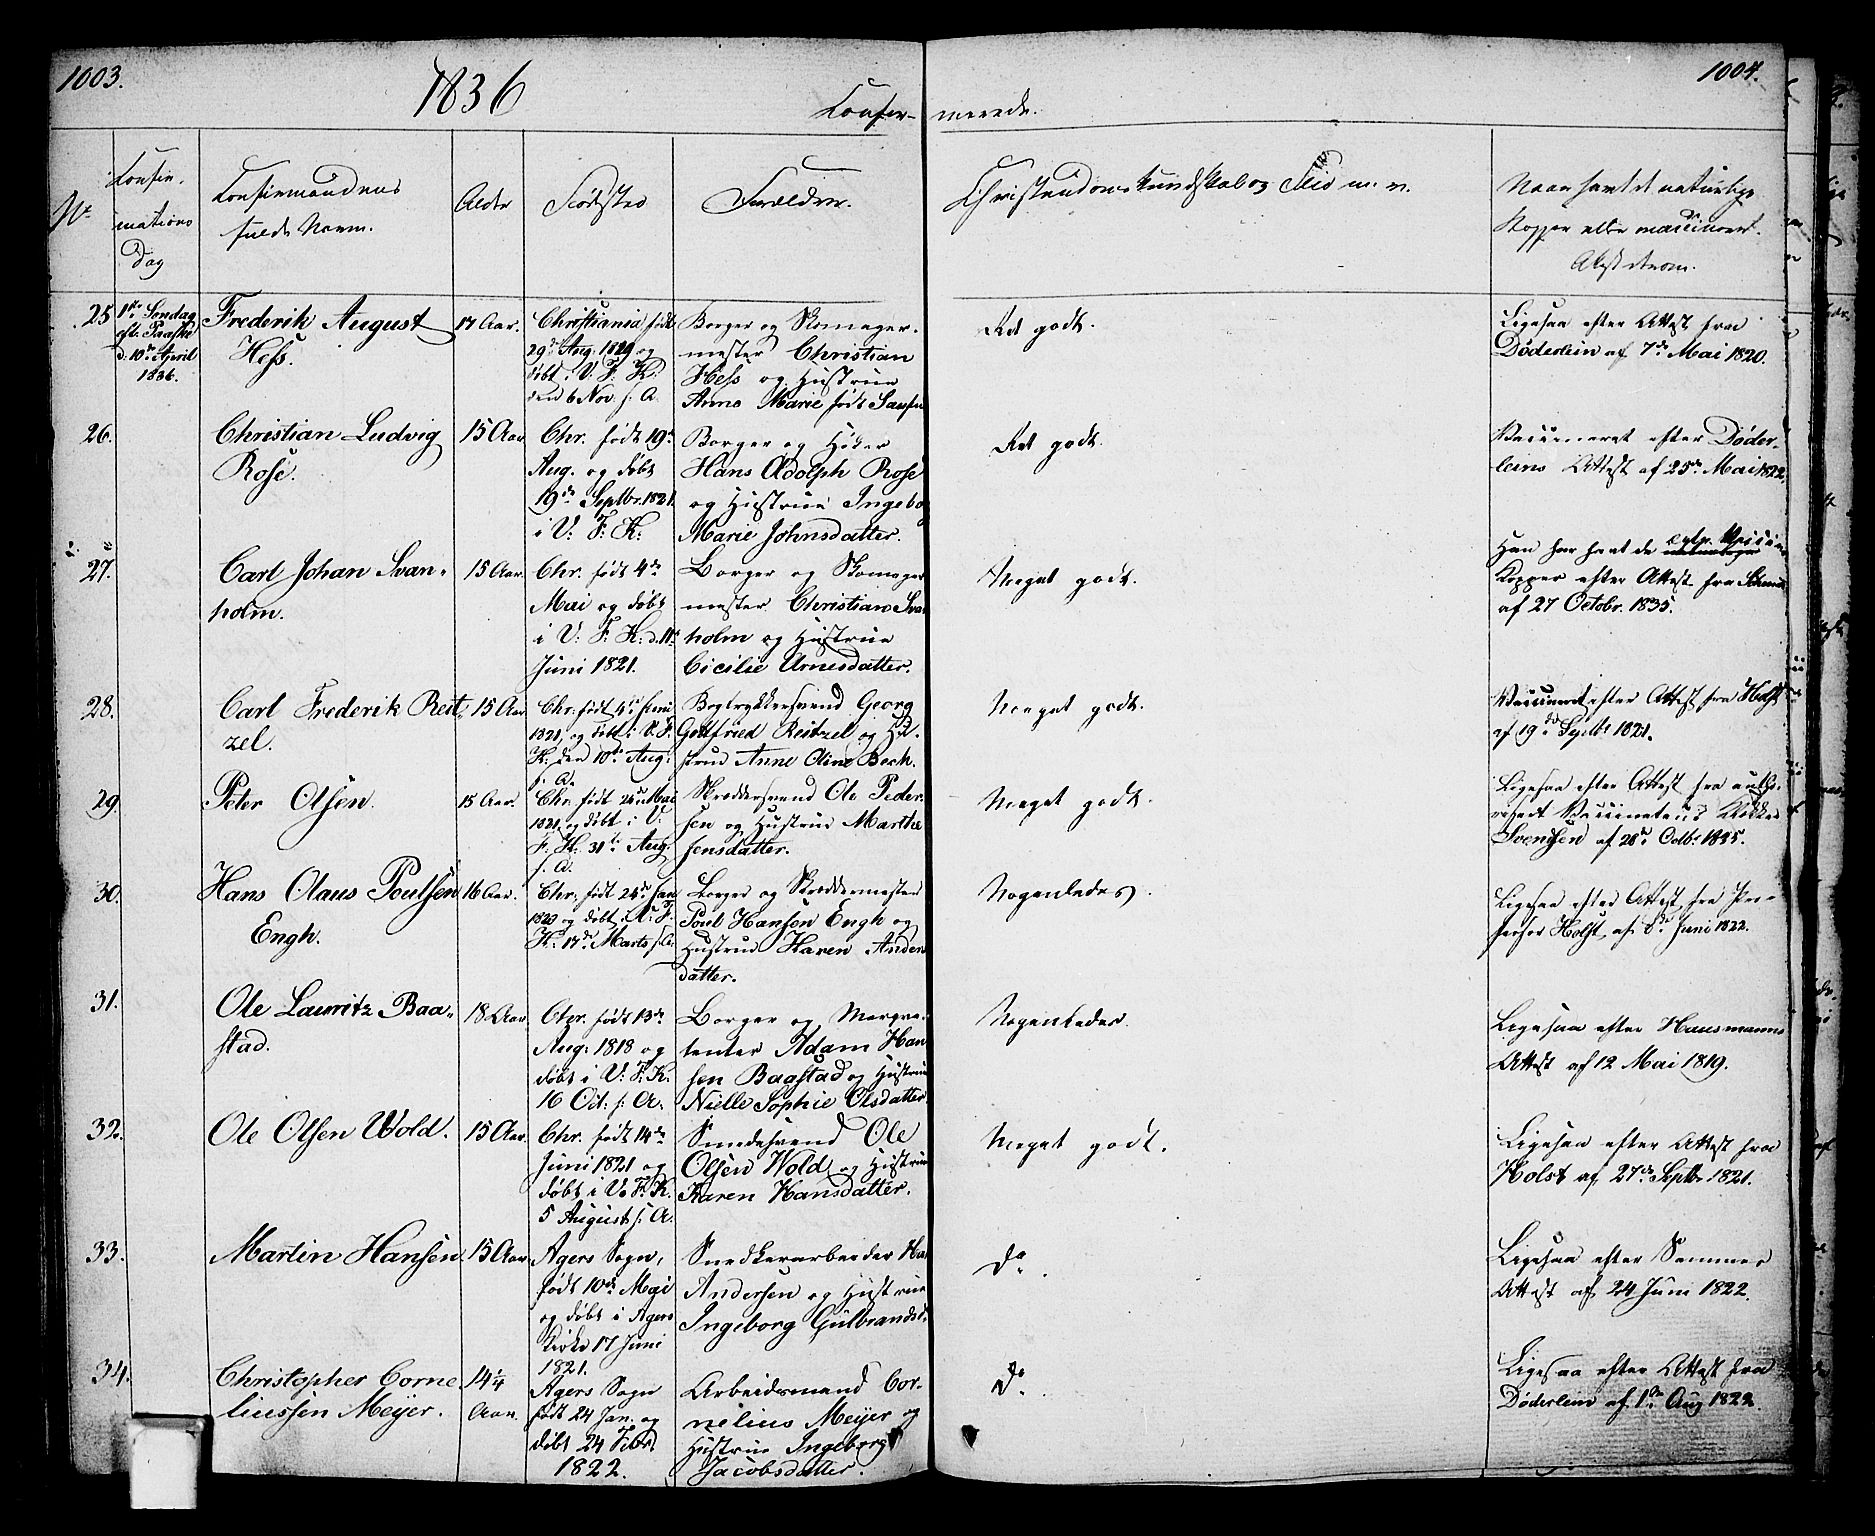 1003.
1836
Confir-
merede.
1004.
No.
Confir-
mations
Dag
Confirmandens
fulde Navn.
Alder
Fødsted
Forældre.
Christendomskundskab og Flid m. v.
Naar havt de naturlige
Kopper eller vaccineret.
Attest derom.
25
1ste Søndag
eft. Paaske
d: 10de April
1836.
Frederik August
Hess.
17 Aar.
Christiania født
29de Aug. 1819 og
døbt i V: F: K:
den 6 Nov. s. A.
Borger og Skomager-
mester Christian
Hess og Hustrue
Anne Marie født
Ret godt.
Ligesaa efter Attest fra
Døderlein af 7de Mai 1820.
26.
Christian Ludvig
Rose.
15 Aar
Chr. født 19de
Aug. og døbt
19de Septbr. 1821
i V: F: K:
Borger og Høker
Hans Adolph Rose
og Hustrue Ingebo
Marie Johnsdatter.
Ret godt.
Vaccineret efter Døder-
leins Attest af 25de Mai 1822.
27.
Carl Johan Svan-
holm.
15 Aar.
Chr. født 4de
Mai og døbt
i V: F: K: d. 11te
Juni 1821.
Borger og Skomager
mester Christian Sva
holm og Hustrue
Cicilie Arnesdatter.
Meget godt.
Han har havt de
Kopper efter Attest fra
af 27 Octobr. 1835.
28.
Carl Frederik Reit
zel.
15 Aar
Chr. født 4de Juni
1821, og døbt i V. F.
K: den 10de Aug:
s. A.
Bogtrykkersvend Georg
Gottfried Reitzel og Hu-
strue Anne Oline Bech.
Meget godt.
Vaccineret efter Attest fra Holst
af 19de Septbr 1821.
29.
Peter Olsen.
15 Aar.
Chr. født 25de Mai
1821, og døbt i V:
F: K: 31te Aug:
s. A.
Skræddersvend Ole Peder-
sen og Hustrue Marthe
Jensdatter.
Meget godt.
Ligesaa efter Attest fra autho-
riseret Vaccinateur Klokker
Svendsen af 28de Octb:
30.
Hans Olaus Poulsen
Engh.
16 Aar.
Chr. født 25de Jan
1820 og døbt i V: F.
K: 17de Marts s. A.
Borger og Skræddermester
Poul Hansen Engh og
Hustrue Karen Anders
datter.
Nogenledes.
Ligesaa efter Attest fra Pro-
fessor Holst, af 6de Juni 1822.
31.
Ole Lauritz Baa-
stad.
18 Aar.
Chr. født 13de
Aug: 1818 og
døbt i V: F: K.
16 Oct: s: A.
Borger og Marqve-
tenter Adam Han
sen Baastad og Hustrue
Nielle Sophie Olsdatter
Nogenledes.
Ligesaa efter Hausmanns
Attest af 12 Mai 1819.
32.
Ole Olsen Wold.
15 Aar.
Chr. født 14de
Juni 1821 og
døbt i V. F: K.
5 August s: A.
Smedesvend Ole
Olsen Wold og Hustrue
Karen Hansdatter.
Meget godt.
Ligesaa efter Attest fra
Holst af 27de Septbr 1821.
33.
Martin Hansen.
15 Aar
Agers Sogn,
født 10de Mai
og døbt i Agers
Kirke 17 Juni
1821.
Snedkerarbeider Ha
Andersen og Hustrue
Ingeborg Gulbrandsd.
Do.
Ligesaa efter Sommer
Attest af 24 Juni 1822.
34.
Christopher Corne
liussen Meyer.
14 1/4
Aar.
Agers Sogn
født 24 Jan. og
døbt 24 Febr
1822.
Arbeidsmand Cor-
nelius Meyer og
Hustrue Ingeborg
Jacobsdatter.
Do.
Ligesaa efter Attest fra
Døderlein af 1ste Aug 1822.